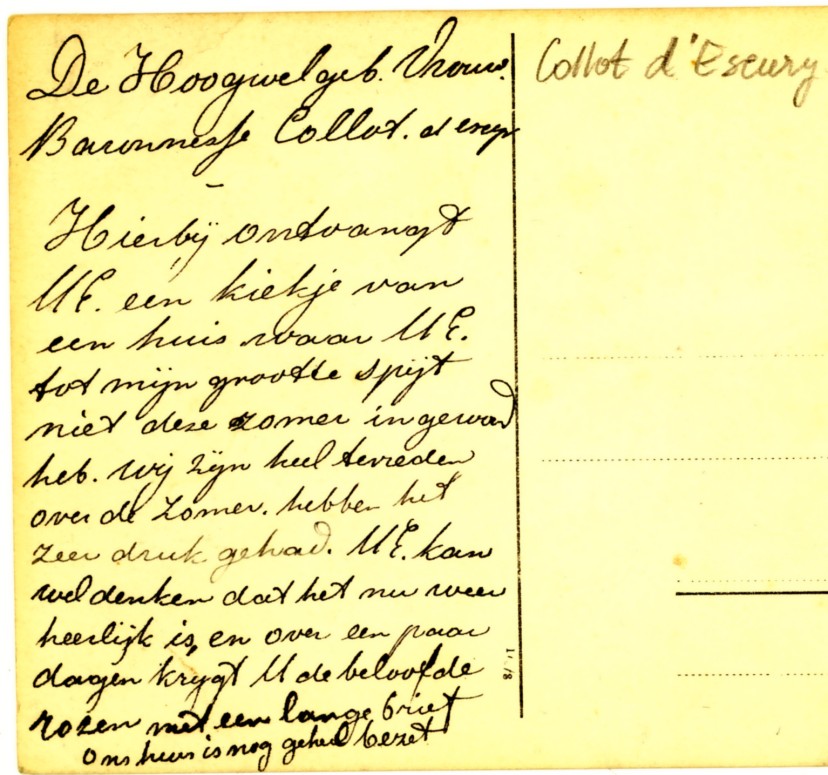 De Hoogwelgeb. Vrouw.
Baronnesse Collot. d'
Hierbij ontvangt
UE. een kiekje van
een huis waar UE.
tot mijn grootte spijt
niet deze zomer in
heb. wij zijn heel tevreden
over de Zomer. hebben het
zeer druk gehad. UE. kan
wel denken dat het nu weer
heerlijk is, en over een paar
dagen krygt U de beloofde
rozen met een lange brief
Ons huis is nog geheel bezet
Collot d'Escury